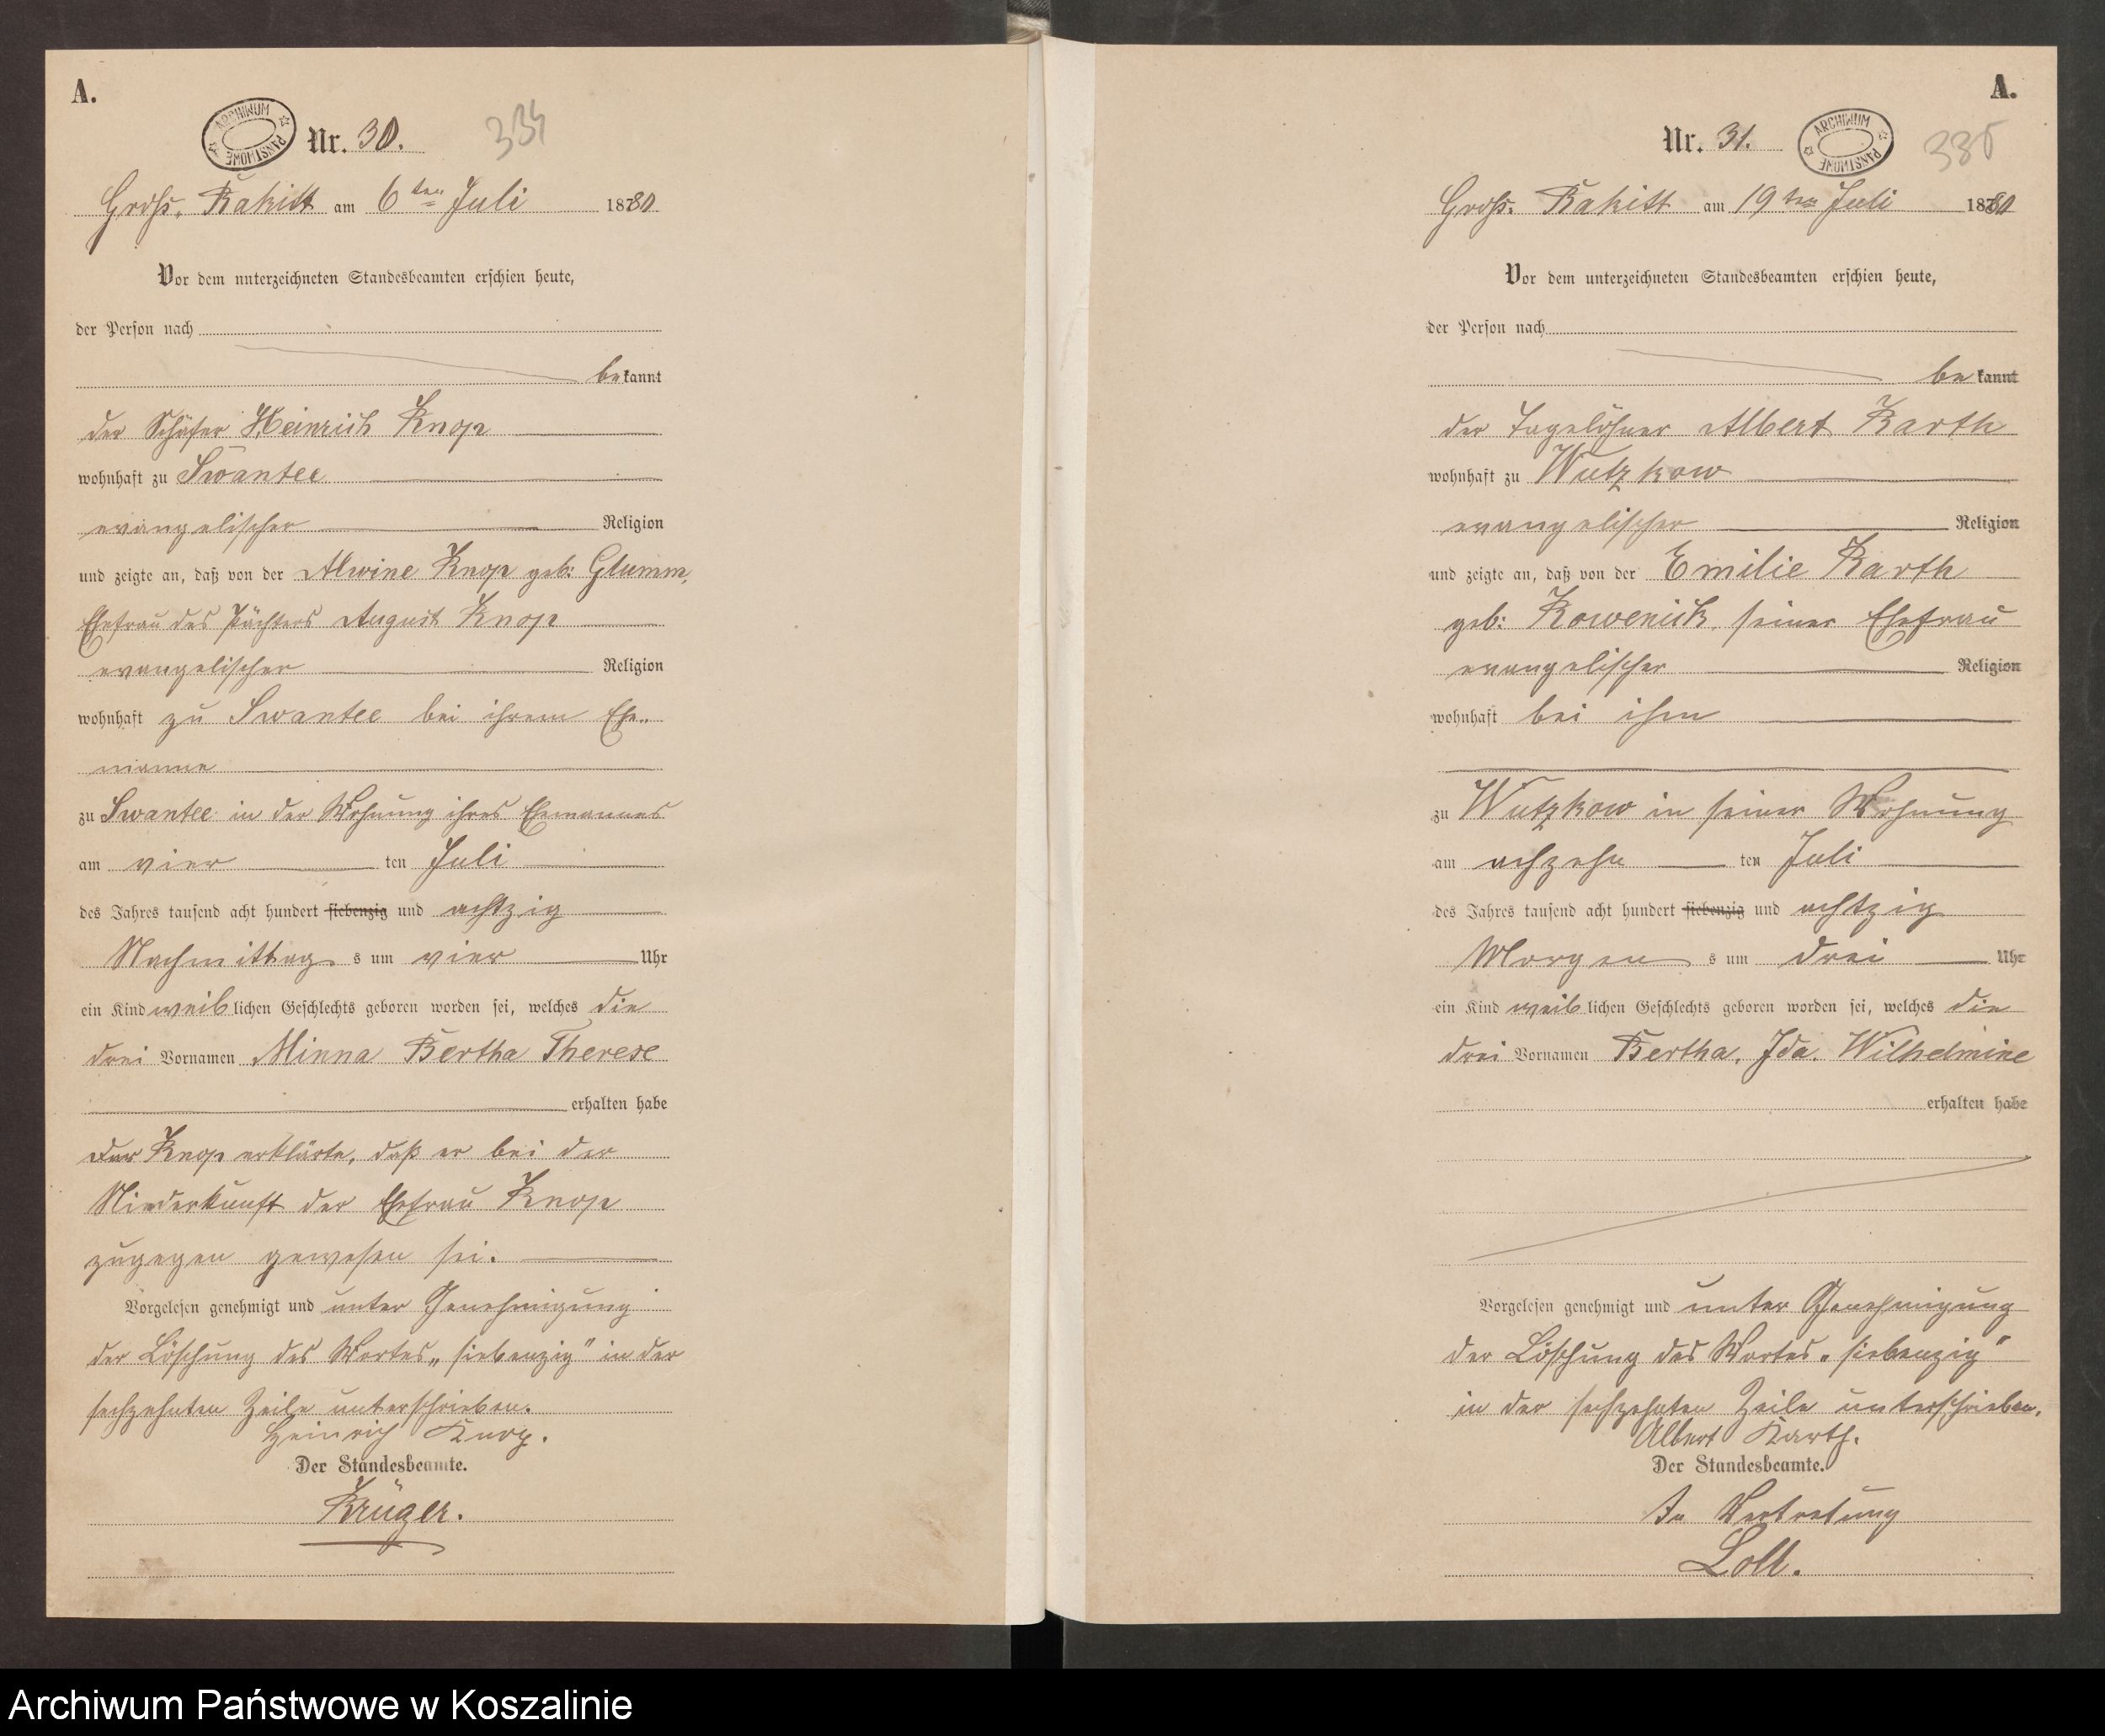 A.
ARCHIWUM PAŃSTWOWE
Nr. 30.
334
Groß-Rakitt am 6ten Juli 1880
Vor dem unterzeichneten Standesbeamten erschien heute,
der Person nach
bekannt
der Schäfer Heinrich Knop
wohnhaft zu Swantee
evangelischer Religion
und zeigte an, daß von der Alwine Knop geb: Glumm,
Ehefrau des Pächters August Knop
evangelischer Religion
wohnhaft zu Swantee bei ihrem Ehe-
manne
zu Swantee in der Wohnung ihres Ehemannes
am vier ten Juli
des Jahres tausend acht hundert siebenzig und achtzig
Nachmittags um vier Uhr
ein Kind weiblichen Geschlechts geboren worden sei, welches die
drei Vornamen Minna Bertha Therese
erhalten habe
Der Knop erklärte, daß er bei der
Niederkunft der Ehefrau Knop
zugegen gewesen sei.
Vorgelesen genehmigt und unter Genehmigung
der Löschung des Wortes „siebenzig" in der
sechzehnten Zeile unterschrieben.
Heinrich Knop.
Der Standesbeamte.
Krüger.
A.
Nr. 31.
ARCHIWUM PAŃSTWOWE
335
Groß-Rakitt am 19ten Juli 1880
Vor dem unterzeichneten Standesbeamten erschien heute,
der Person nach
bekannt
der Tagelöhner Albert Karth
wohnhaft zu Wutzkow
evangelischer Religion
und zeigte an, daß von der Emilie Karth
geb: Kowenick, seiner Ehefrau
evangelischer Religion
wohnhaft bei ihm
zu Wutzkow in seiner Wohnung
am achzehn ten Juli
des Jahres tausend acht hundert siebenzig und achtzig
Morgens um drei Uhr
ein Kind weiblichen Geschlechts geboren worden sei, welches die
drei Vornamen Bertha, Ida. Wilhelmine
erhalten habe
Vorgelesen genehmigt und unter Genehmigung
der Löschung des Wortes „siebenzig"
in der sechzehnten Zeile unterschrieben.
Albert Karth.
Der Standesbeamte.
In Vertretung
Loll.
Archiwum Państwowe w Koszalinie